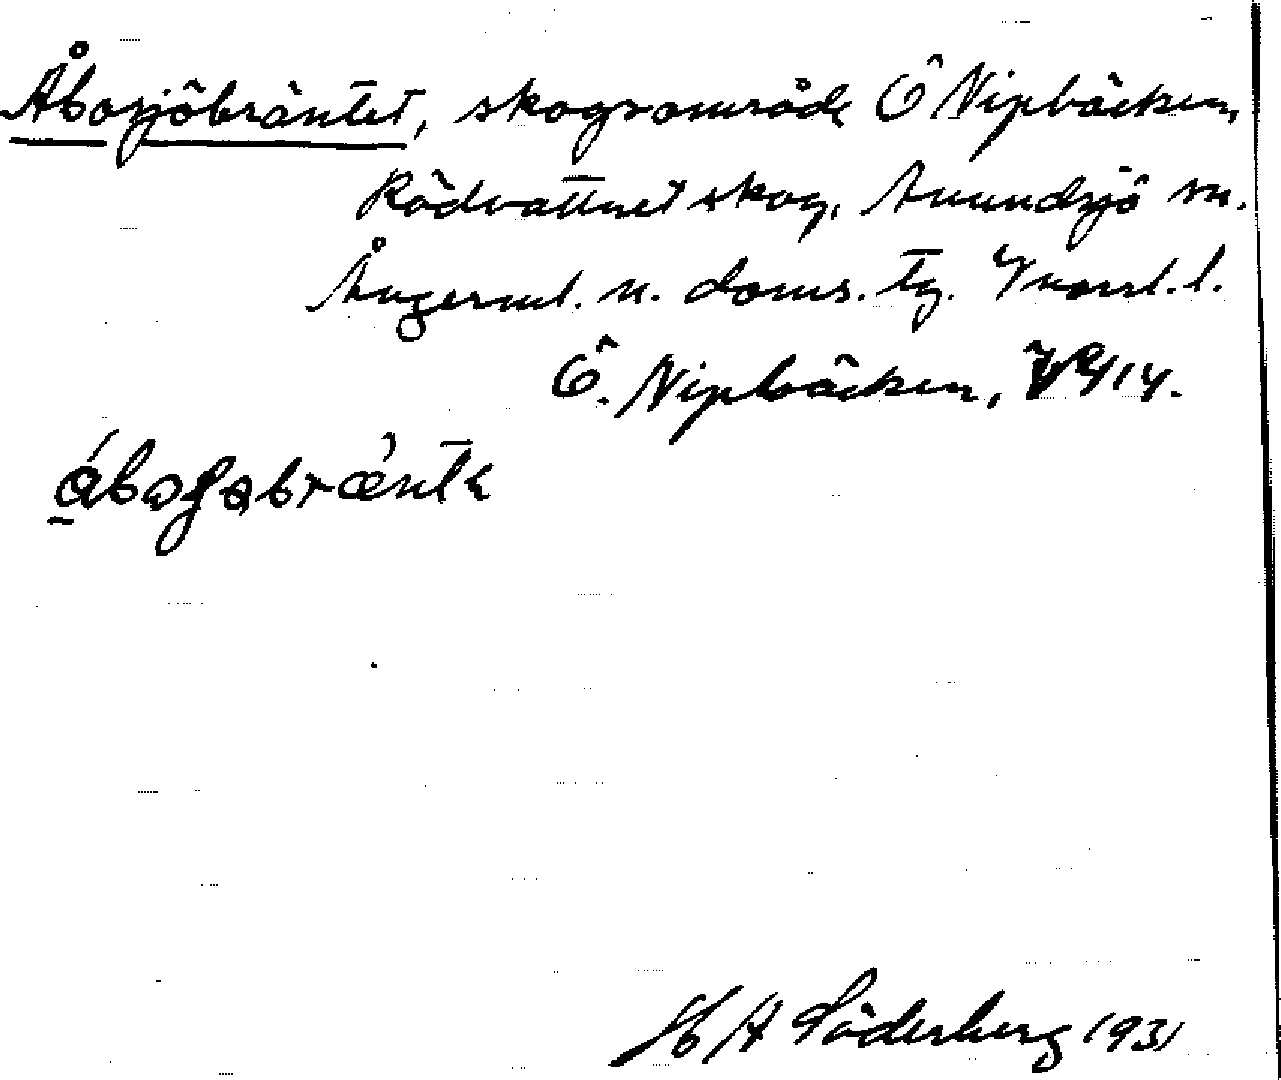 Åbosjöbräntet, skogsområde Ö Nipbäcken
Rödvattnet skog, Anundsjö sn.
Ångerml. n. doms. tg. Vnorrl. l.
Ö. Nipbäcken,
H A Söderberg 1931